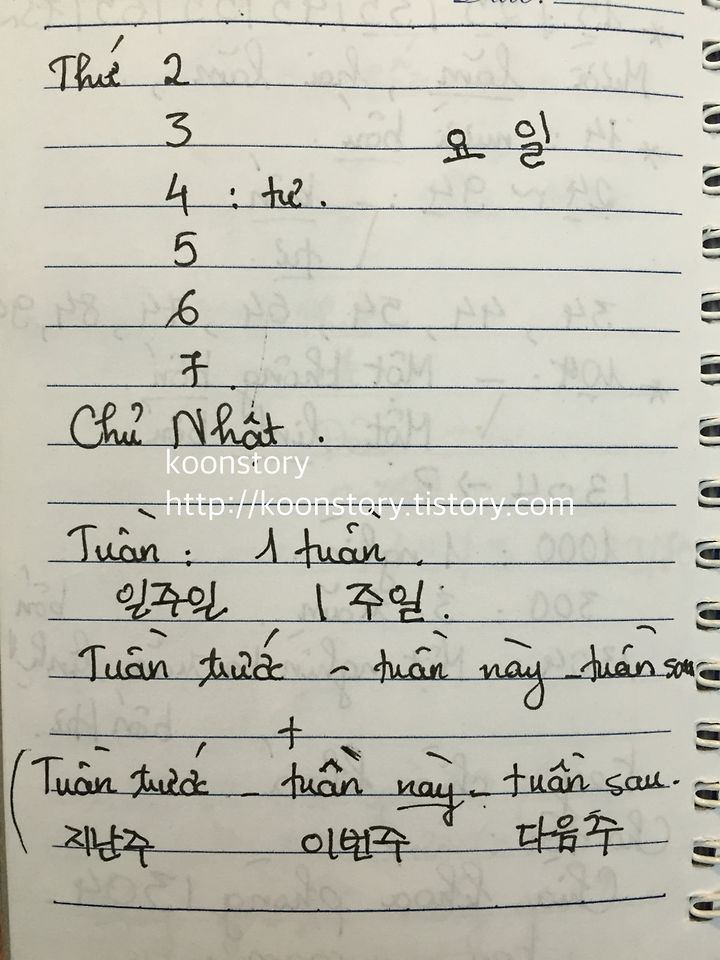 Thứ 2
3 요일
4 : tư.
5
6
7.
Chủ Nhật.
koonstory
http://koonstory.tistory.com
Tuần : 1 tuần.
일주일 1 주일 :
Tuần trước - tuần này - tuần sau
+
(Tuần trước - tuần này - tuần sau.
지난주 이번주 다음주